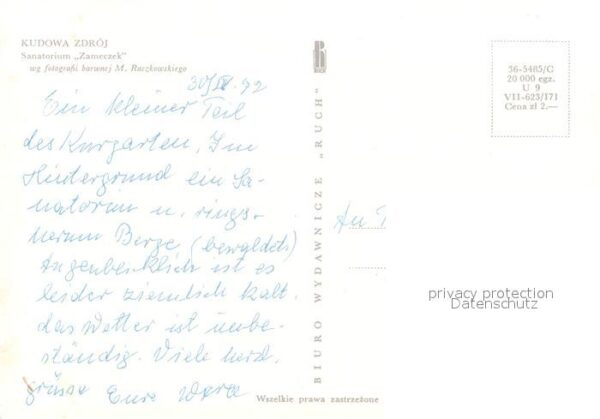 KUDOWA ZDRÓJ
Sanatorium „Zameczek”
wg fotografii barwnej M. Raczkowskiego
30/IV. 72
Ein kleiner Teil
des Kurgarten, Im
Hintergrund ein Sa-
natorium u. rings-
herum Berge (bewaldet)
Augenbenklich ist es
leider ziemlich kalt.
das Wetter ist unbe-
ständig. Viele herzl.
grüsse Eure
BIURO WYDAWNICZE „RUCH”
36-5485/G
20 000 egz.
U 9
VII-623/171
Cena zł 2.—
An
privacy protection
Datenschutz
Wszelkie prawa zastrzeżone